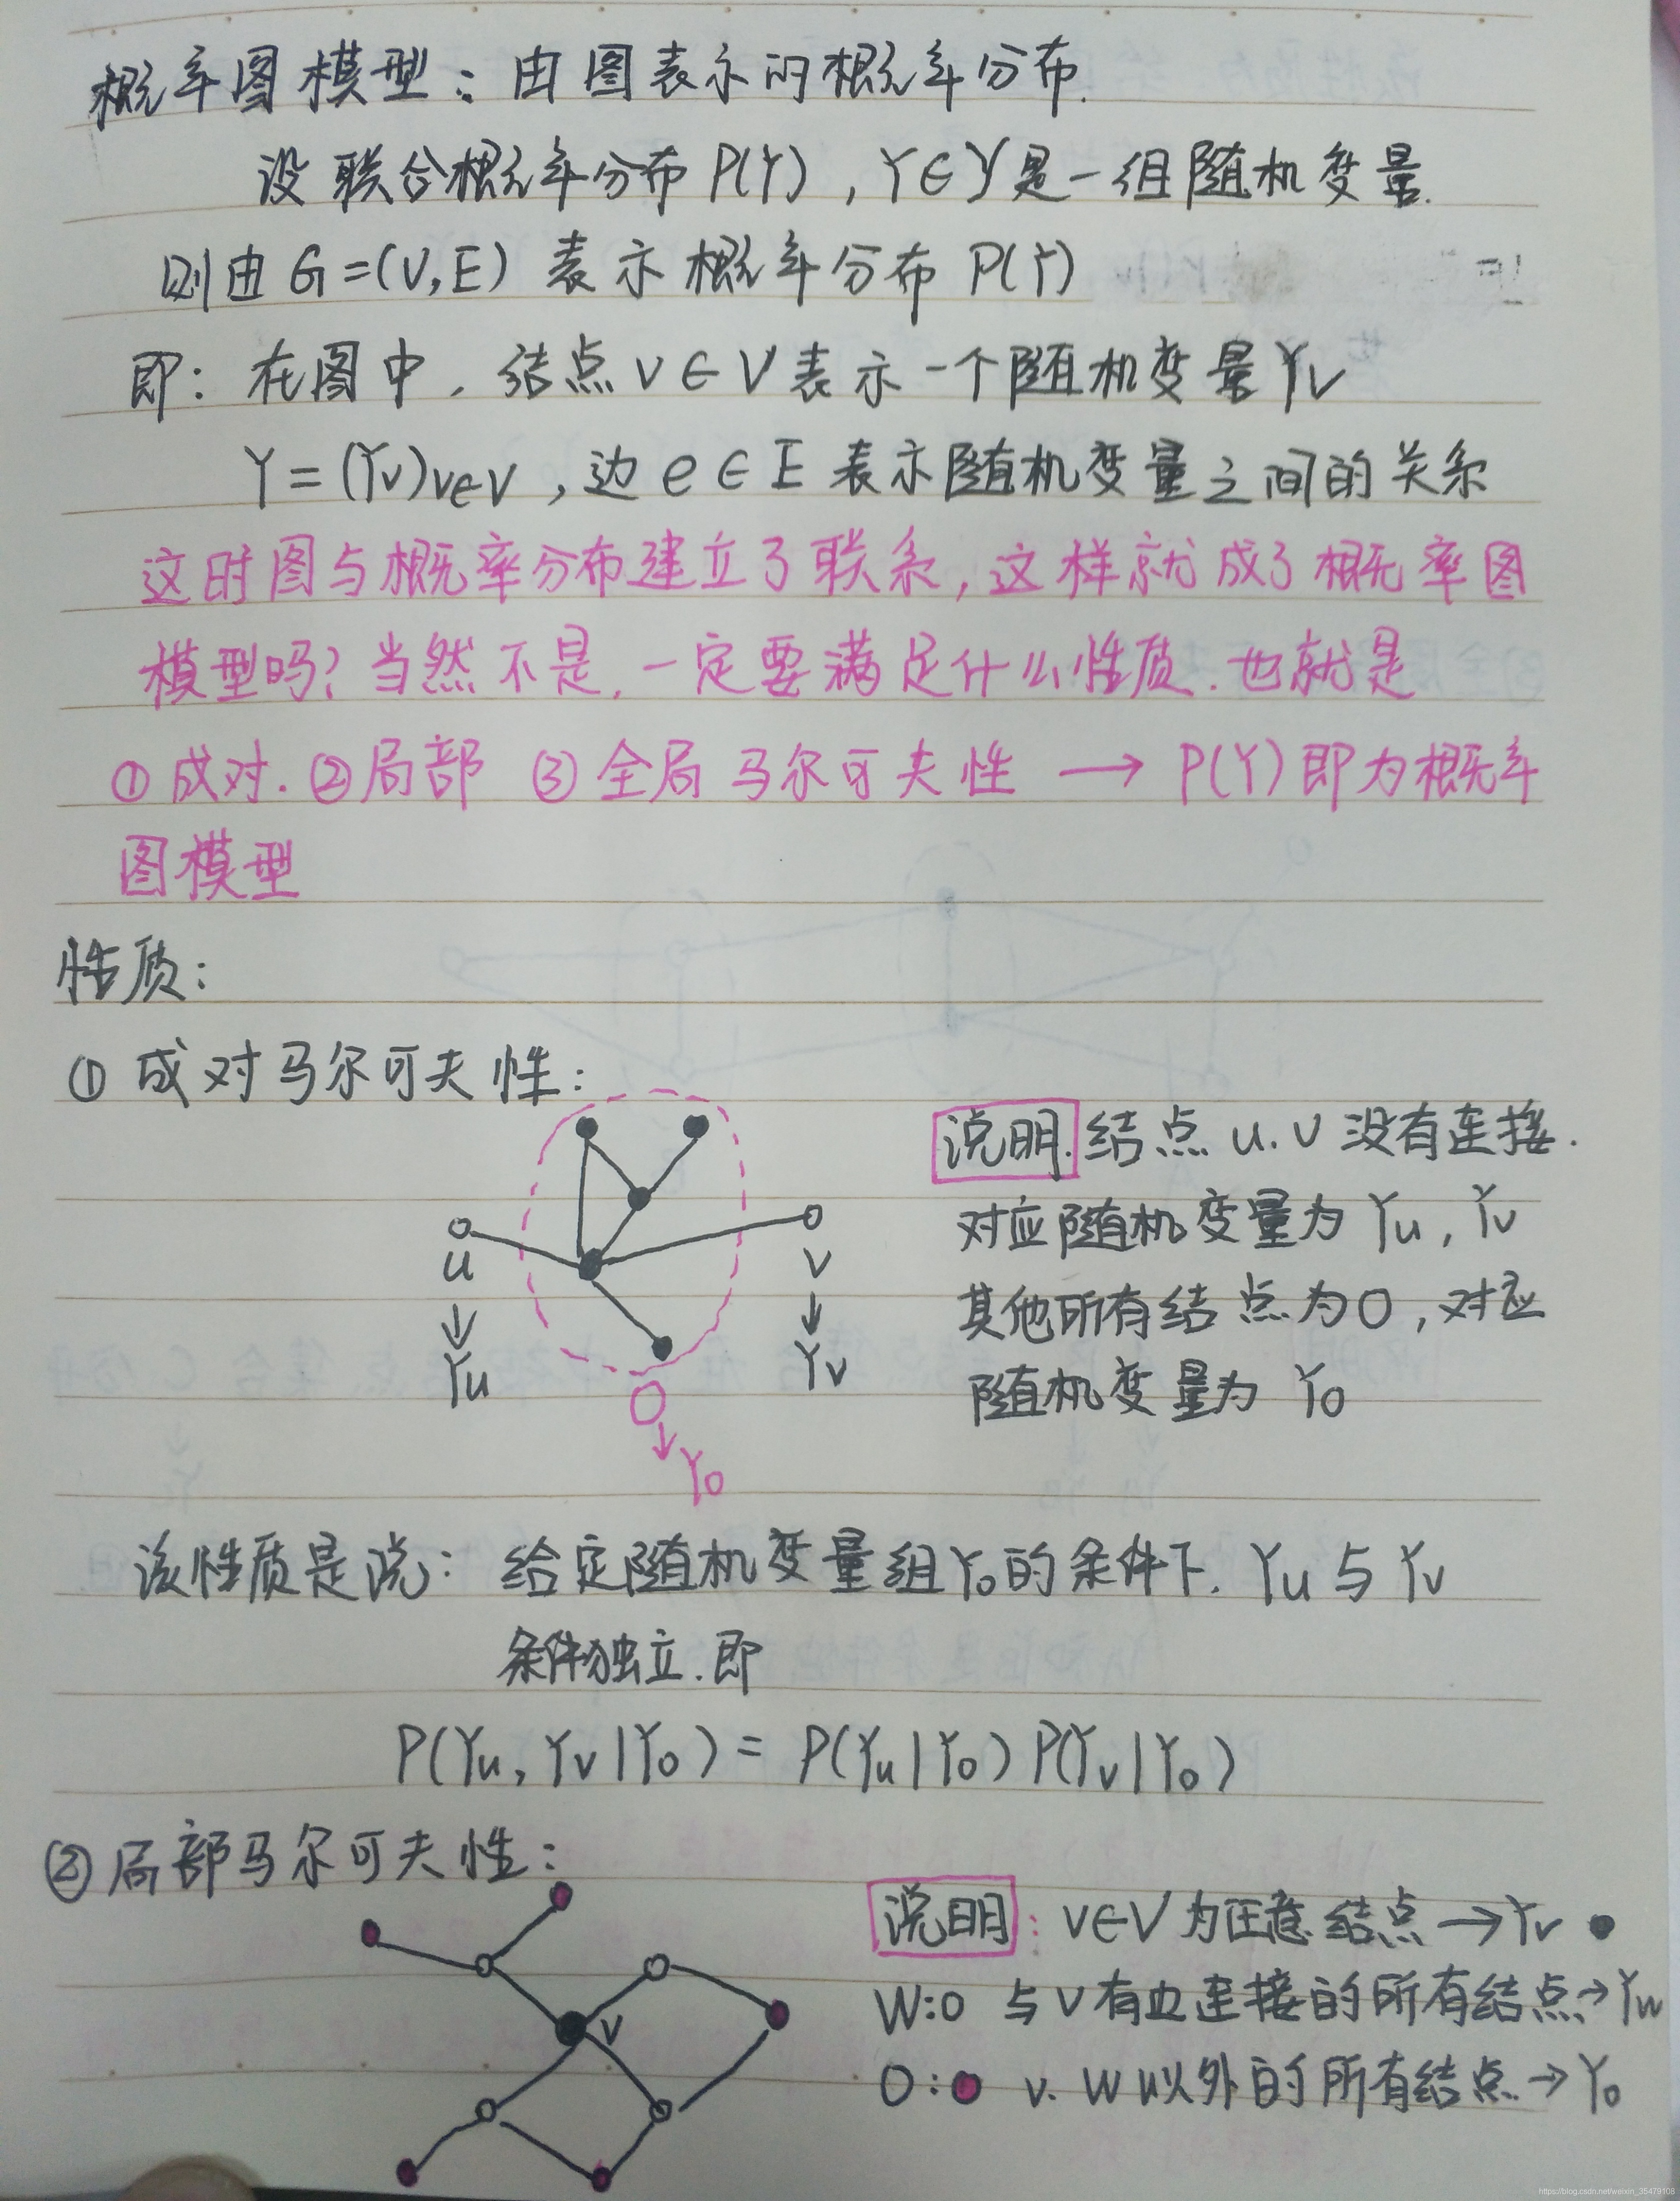 概率图模型：由图表示的概率分布.
设联合概率分布 P(Y)，Y∈𝒴是一组随机变量.
则由 G=(V,E) 表示概率分布 P(Y)
即：在图中，结点 v∈V 表示一个随机变量 Yv
Y=(Yv)v∈V，边 e∈E 表示随机变量之间的关系
这时图与概率分布建立了联系，这样就成了概率图
模型吗？当然不是，一定要满足什么性质.也就是
①成对.②局部 ③全局 马尔可夫性 → P(Y)即为概率
图模型
性质：
①成对马尔可夫性：
说明.结点 u.v 没有连接.
对应随机变量为 Yu，Yv
其他所有结点为O，对应
随机变量为 YO
u
↓
Yu
v
↓
Yv
O
↓
YO
该性质是说：给定随机变量组YO的条件下.Yu与Yv
条件独立.即
P(Yu，Yv|YO)=P(Yu|YO)P(Yv|YO)
②局部马尔可夫性：
v
说明：v∈V 为任意结点→Yv ●
W:○ 与v有边连接的所有结点→Yw
O:● v. W 以外的所有结点.→YO
https://blog.csdn.net/weixin_35479108